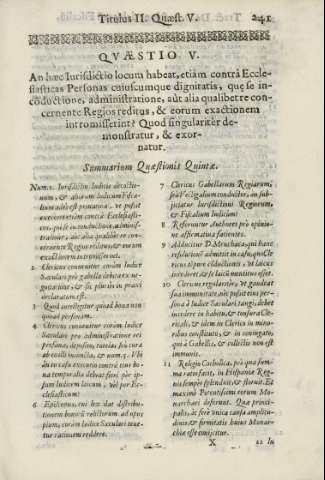 Titulus II. Quæst V. 241
QVÆSTIO V.
An hæc Iurisdictio locum habeat, etiàm contrà Eccle-
siasticas Personas cuiuscumque dignitatis, que se in-
cōductione, administratione, aùt alia qualibet re con-
cernente Regios reditus, & eorum exactionem
intromisserint? Quod singularitèr de-
monstratur, & exor-
natur.
Summarium Quæstionis Quintæ.
Num. 1. Iurisdictio Iudicis
num, & aliorum Iudicum Fisca-
lium
exercere etiàm contrà Ecclesiasti-
cos, qui se in conductione, adminis-
tratione, aùt alia qualibet re con-
cernente Regios reditus, & eorum
exactionem intromisserint.
2 Clericus convenitur corám Iudice
Sæculari pro gabella debita ex ne-
gotiatione, & sic pluries in praxi
declaratum est.
3 Quid intelligetur quoad bona non
quoad personas.
4 Clericus convenitur corám Iudice
Sæculari pro administratione rei
profanæ, deposito, tutela, sui cura
ab eo illi commissa, & num. 5. Vbi
án in casu executio contrá eius bo-
na temporalia debeat fieri, per ip-
sum Iudicem laicum, vel per Ec-
clesiasticum?
6 Episcopus, cui lex dat distribu-
tionem bonorū relictorum ad opus
pium, corám Iudice Sæculari tene-
tur rationem reddere.
7 Clericus Gabellarum Regiarum,
seù Vectigalium conductor, in sub-
sidiatur Iurisdictioni Regiorum,
& Fiscalium Iudicum?
8 Referuntur Authores prò opinio-
ne affirmatiua facientes.
9 Adducitur D. Menchaca, qui hanc
resolutionē admittit in casu, quo Cle-
ricus tēpore cōductionis, vt laicus
incedere, & se laicū nuntiaui esset.
10 Clericus regularitèr, vt gaudeat
sua immunitate, aùt possit eius per-
sona à Iudice Sæculari tangi, debet
incedere in habitu, & tonsura Cle-
ricali, & idem in Clerico in mino-
ribus constituto, & in coniugato,
qui à Gabellis, & collectis non est
immunis.
11 Religio Catholica, prò qua sum-
ma ratio fuit, in Hispaniæ Reg-
nis semper splenduit, & floruit. Et
maximi Potentissimi eorum Mo-
narchæ defferunt. Quæ princi-
palis, ac ferè vnica causa amplitu-
dinis, & firmitatis huius Monar-
chiæ esse cōnijcitur.
X 12 In